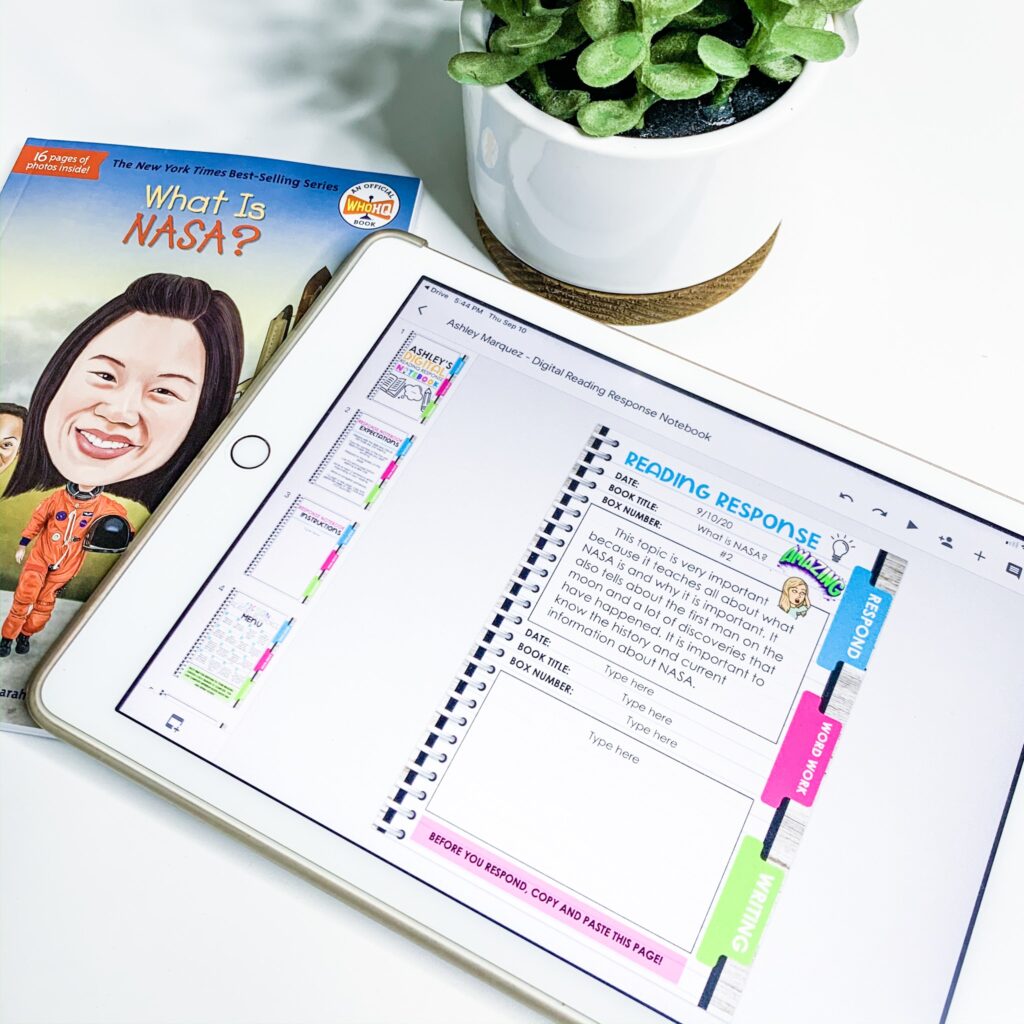 16 pages of
photos inside!
The New York Times Best-Selling Series
AN OFFICIAL
WHOHQ
BOOK
What Is
NASA?
Drive 5:44 PM Thu Sep 10
Ashley Marquez - Digital Reading Response Notebook
1
ASHLEY'S
DIGITAL
READING RESPONSE
NOTEBOOK
2
RESPONSE NOTEBOOK
EXPECTATIONS
3
RESPONSE NOTEBOOK
INSTRUCTIONS
4
MENU
READING RESPONSE
DATE: 9/10/20
BOOK TITLE: What is NASA?
BOX NUMBER: #2
AMAZING
This topic is very important
because it teaches all about what
NASA is and why it is important. It
also tells about the first man on the
moon and a lot of discoveries that
have happened. It is important to
know the history and current
information about NASA.
DATE: Type here
BOOK TITLE: Type here
BOX NUMBER: Type here
Type here
BEFORE YOU RESPOND, COPY AND PASTE THIS PAGE!
RESPOND
WORD WORK
WRITING